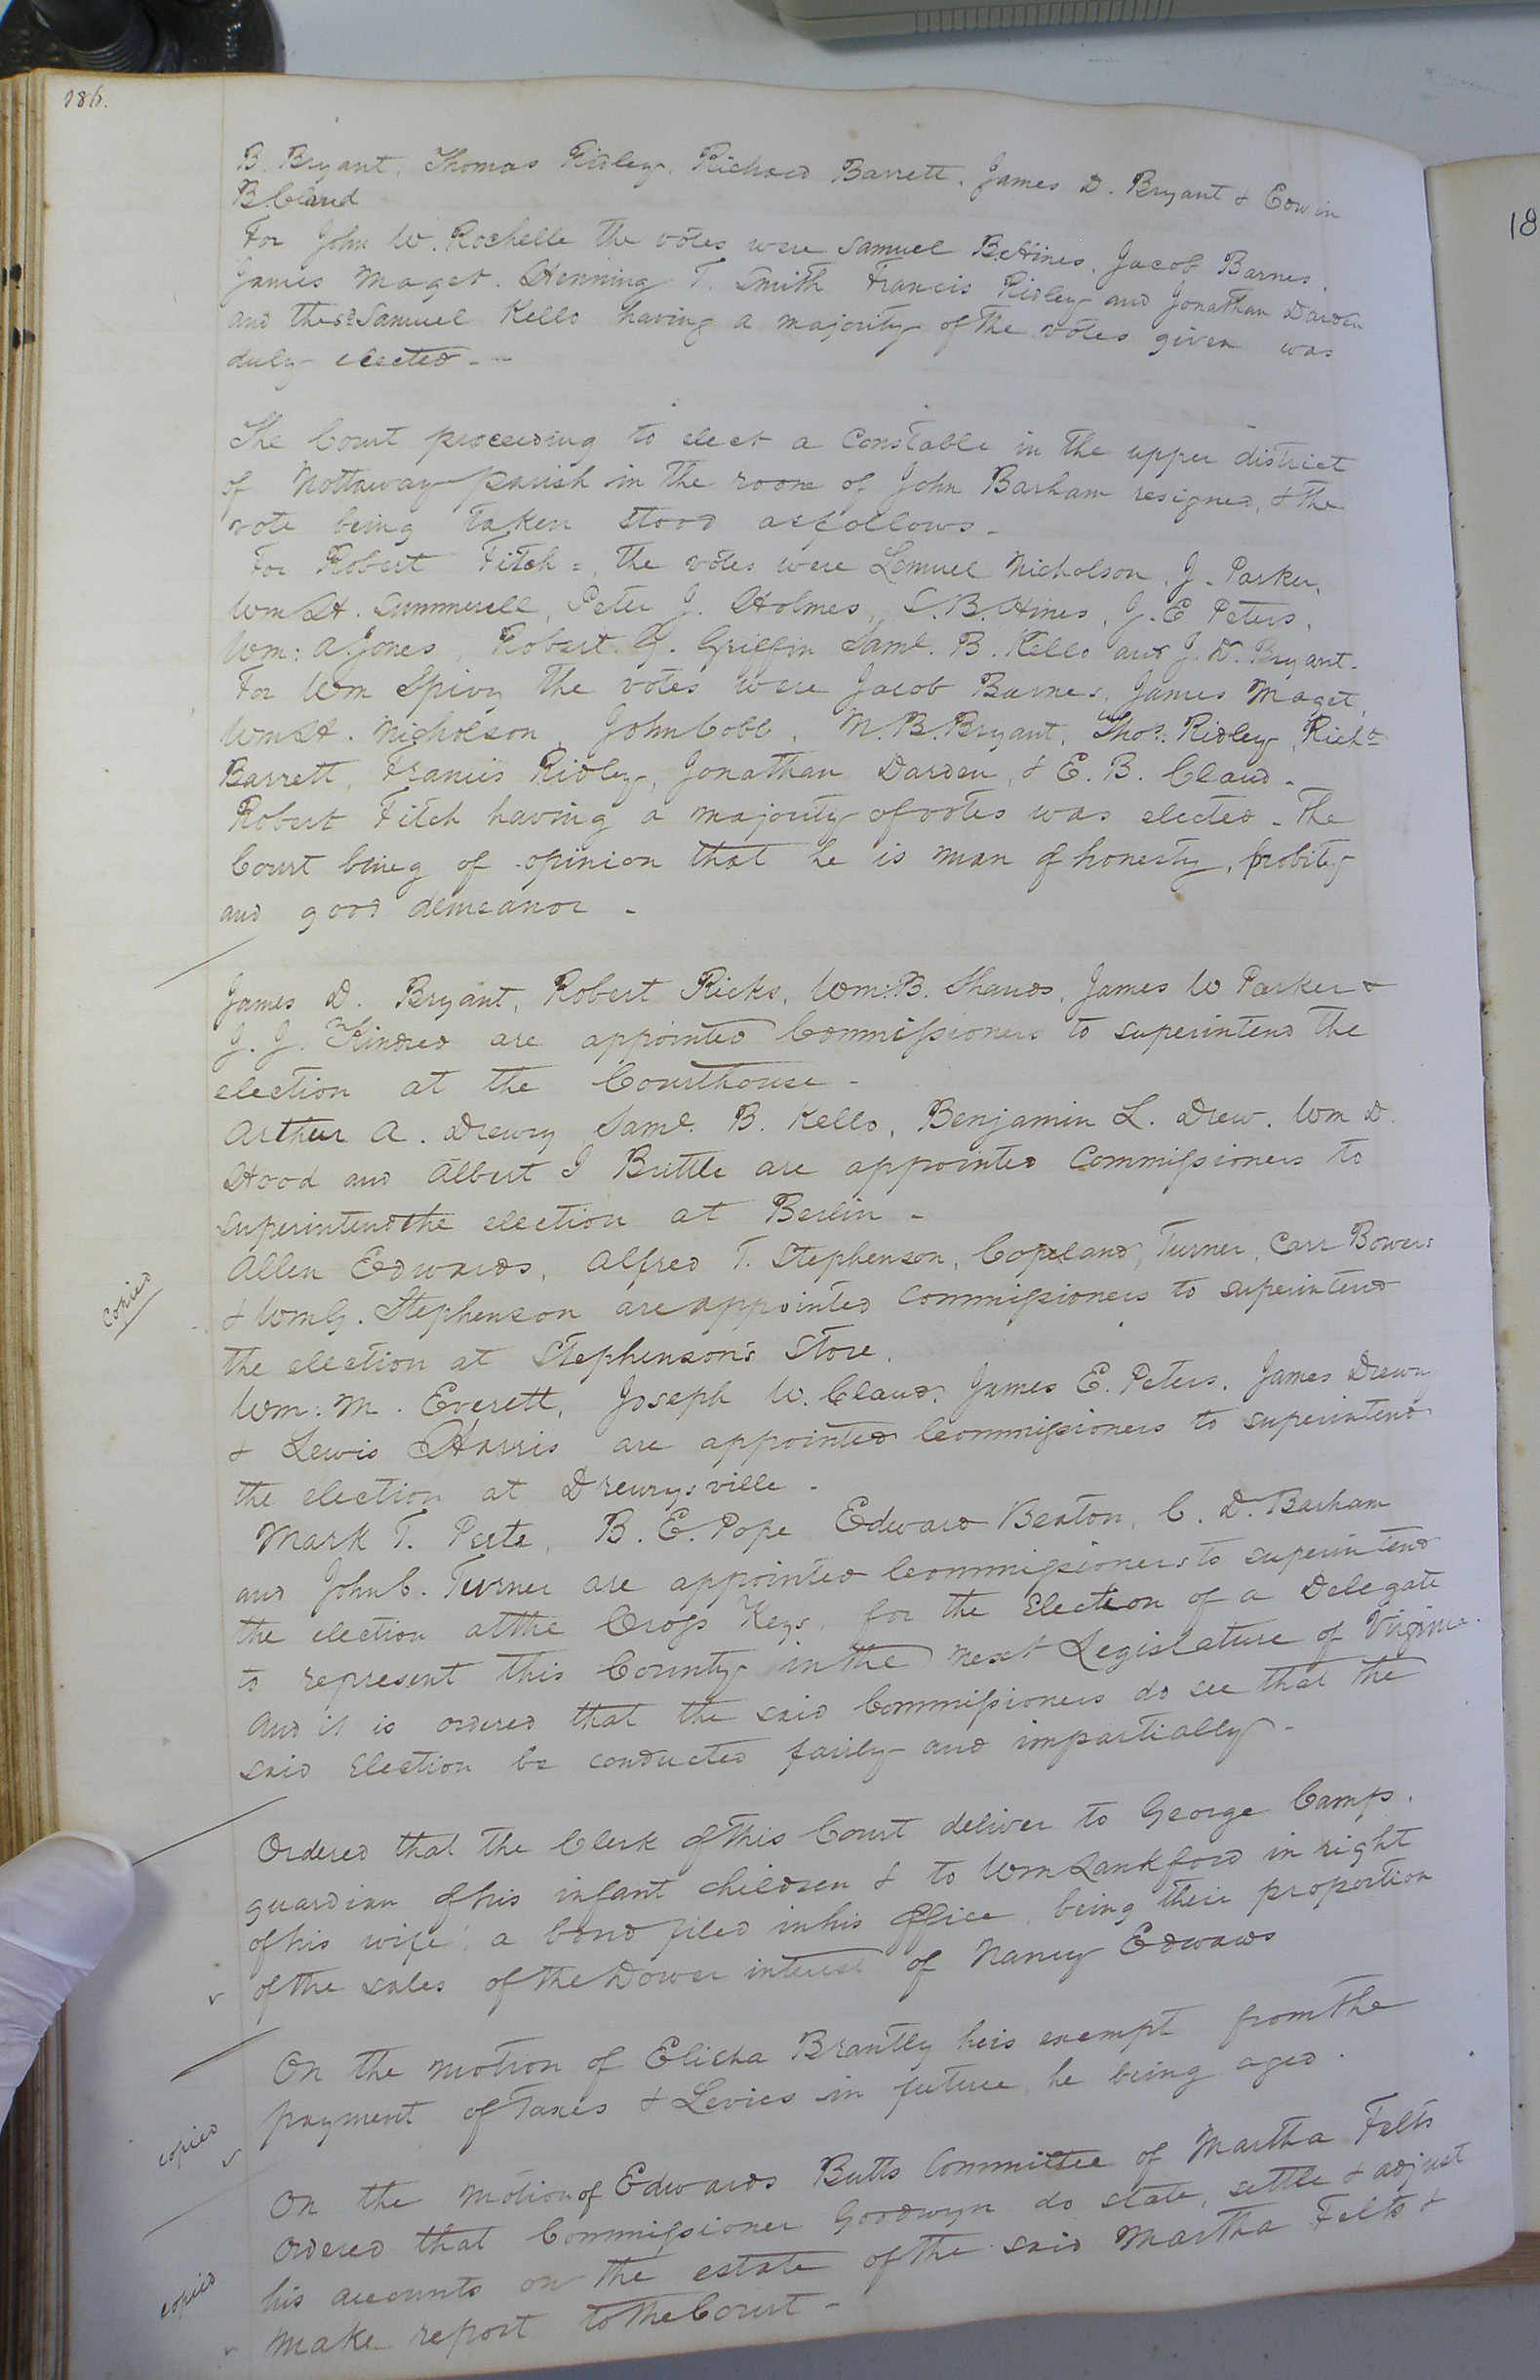 186.
B. Bryant, Thomas Ridley, Richard Barrett, James D. Bryant & Edwin
B. Claud
For John W. Rochelle the votes were Samuel B. Hines, Jacob Barnes,
James Maget, Henning T. Smith Francis Ridley and Jonathan Darden
and the sd Samuel Kello having a majority of the votes given was
duly elected - -
The Court proceeding to elect a Constable in the upper district
of Nottaway parish in the room of John Barham resigned, & the
vote being taken stood as follows -
For Robert Fitch =, the votes were Lemuel Nicholson, J. Parker,
Wm H. Summerell, Peter J. Holmes, S. B. Hines, J. E Peters,
Wm: A. Jones, Robert. G. Griffin Saml. B. Kello and J. D. Bryant -
For Wm Spivy the votes were Jacob Barnes, James Maget,
Wm H. Nicholson, John Cobb, M. B. Bryant, Thos. Ridley, Richd
Barrett, Francis Ridley, Jonathan Darden, & E. B. Claud -
Robert Fitch having a majority of votes was elected - The
Court being of opinion that he is man of honesty, probity
and good demeanor -
James D. Bryant, Robert Ricks, Wm: B. Shands, James W Parker &
J. J. Kindred are appointed Commissioners to superintend the
election at the Courthouse -
Arthur A. Drewry Saml. B. Kello, Benjamin L. Drew, Wm D.
Hood and Albert J Brittle are appointed Commissioners to
superintend the election at Berlin -
Allen Edwards, Alfred T. Stephenson, Copeland, Turner, Carr Bowers
copied
& Wm G. Stephenson are appointed commissioners to superintend
the election at Stephenson's Store.
Wm. M. Everett, Joseph W. Claud, James E. Peters, James Drewry
& Lewis Harris are appointed Commissioners to superintend
the election at Drewrysville -
Mark T. Peete, B. E. Pope Edward Beaton, C. D. Barham
and John C. Turner are appointed Commissioners to superintend
the election at the Cross Keys, for the Election of a Delegate
to represent this County in the next Legislature of Virginia.
And it is ordered that the said Commissioners do see that the
said Election be conducted fairly and impartially -
Ordered that the Clerk of this Court deliver to George Camp,
guardian of his infant children & to Wm Lankford in right
of his wife, a bond filed in his Office, being their proportion
of the sales of the Dower interest of Nancy Edwards
On the motion of Elisha Brantley he is exempt from the
payment of Taxes & Levies in future, he being aged.
copied
On the motion of Edwards Butts Committee of Martha Felts
ordered that Commissioner Goodwyn do state, settle & adjust
his accounts on the estate of the said Martha Felts &
copied
make report to the Court -
18